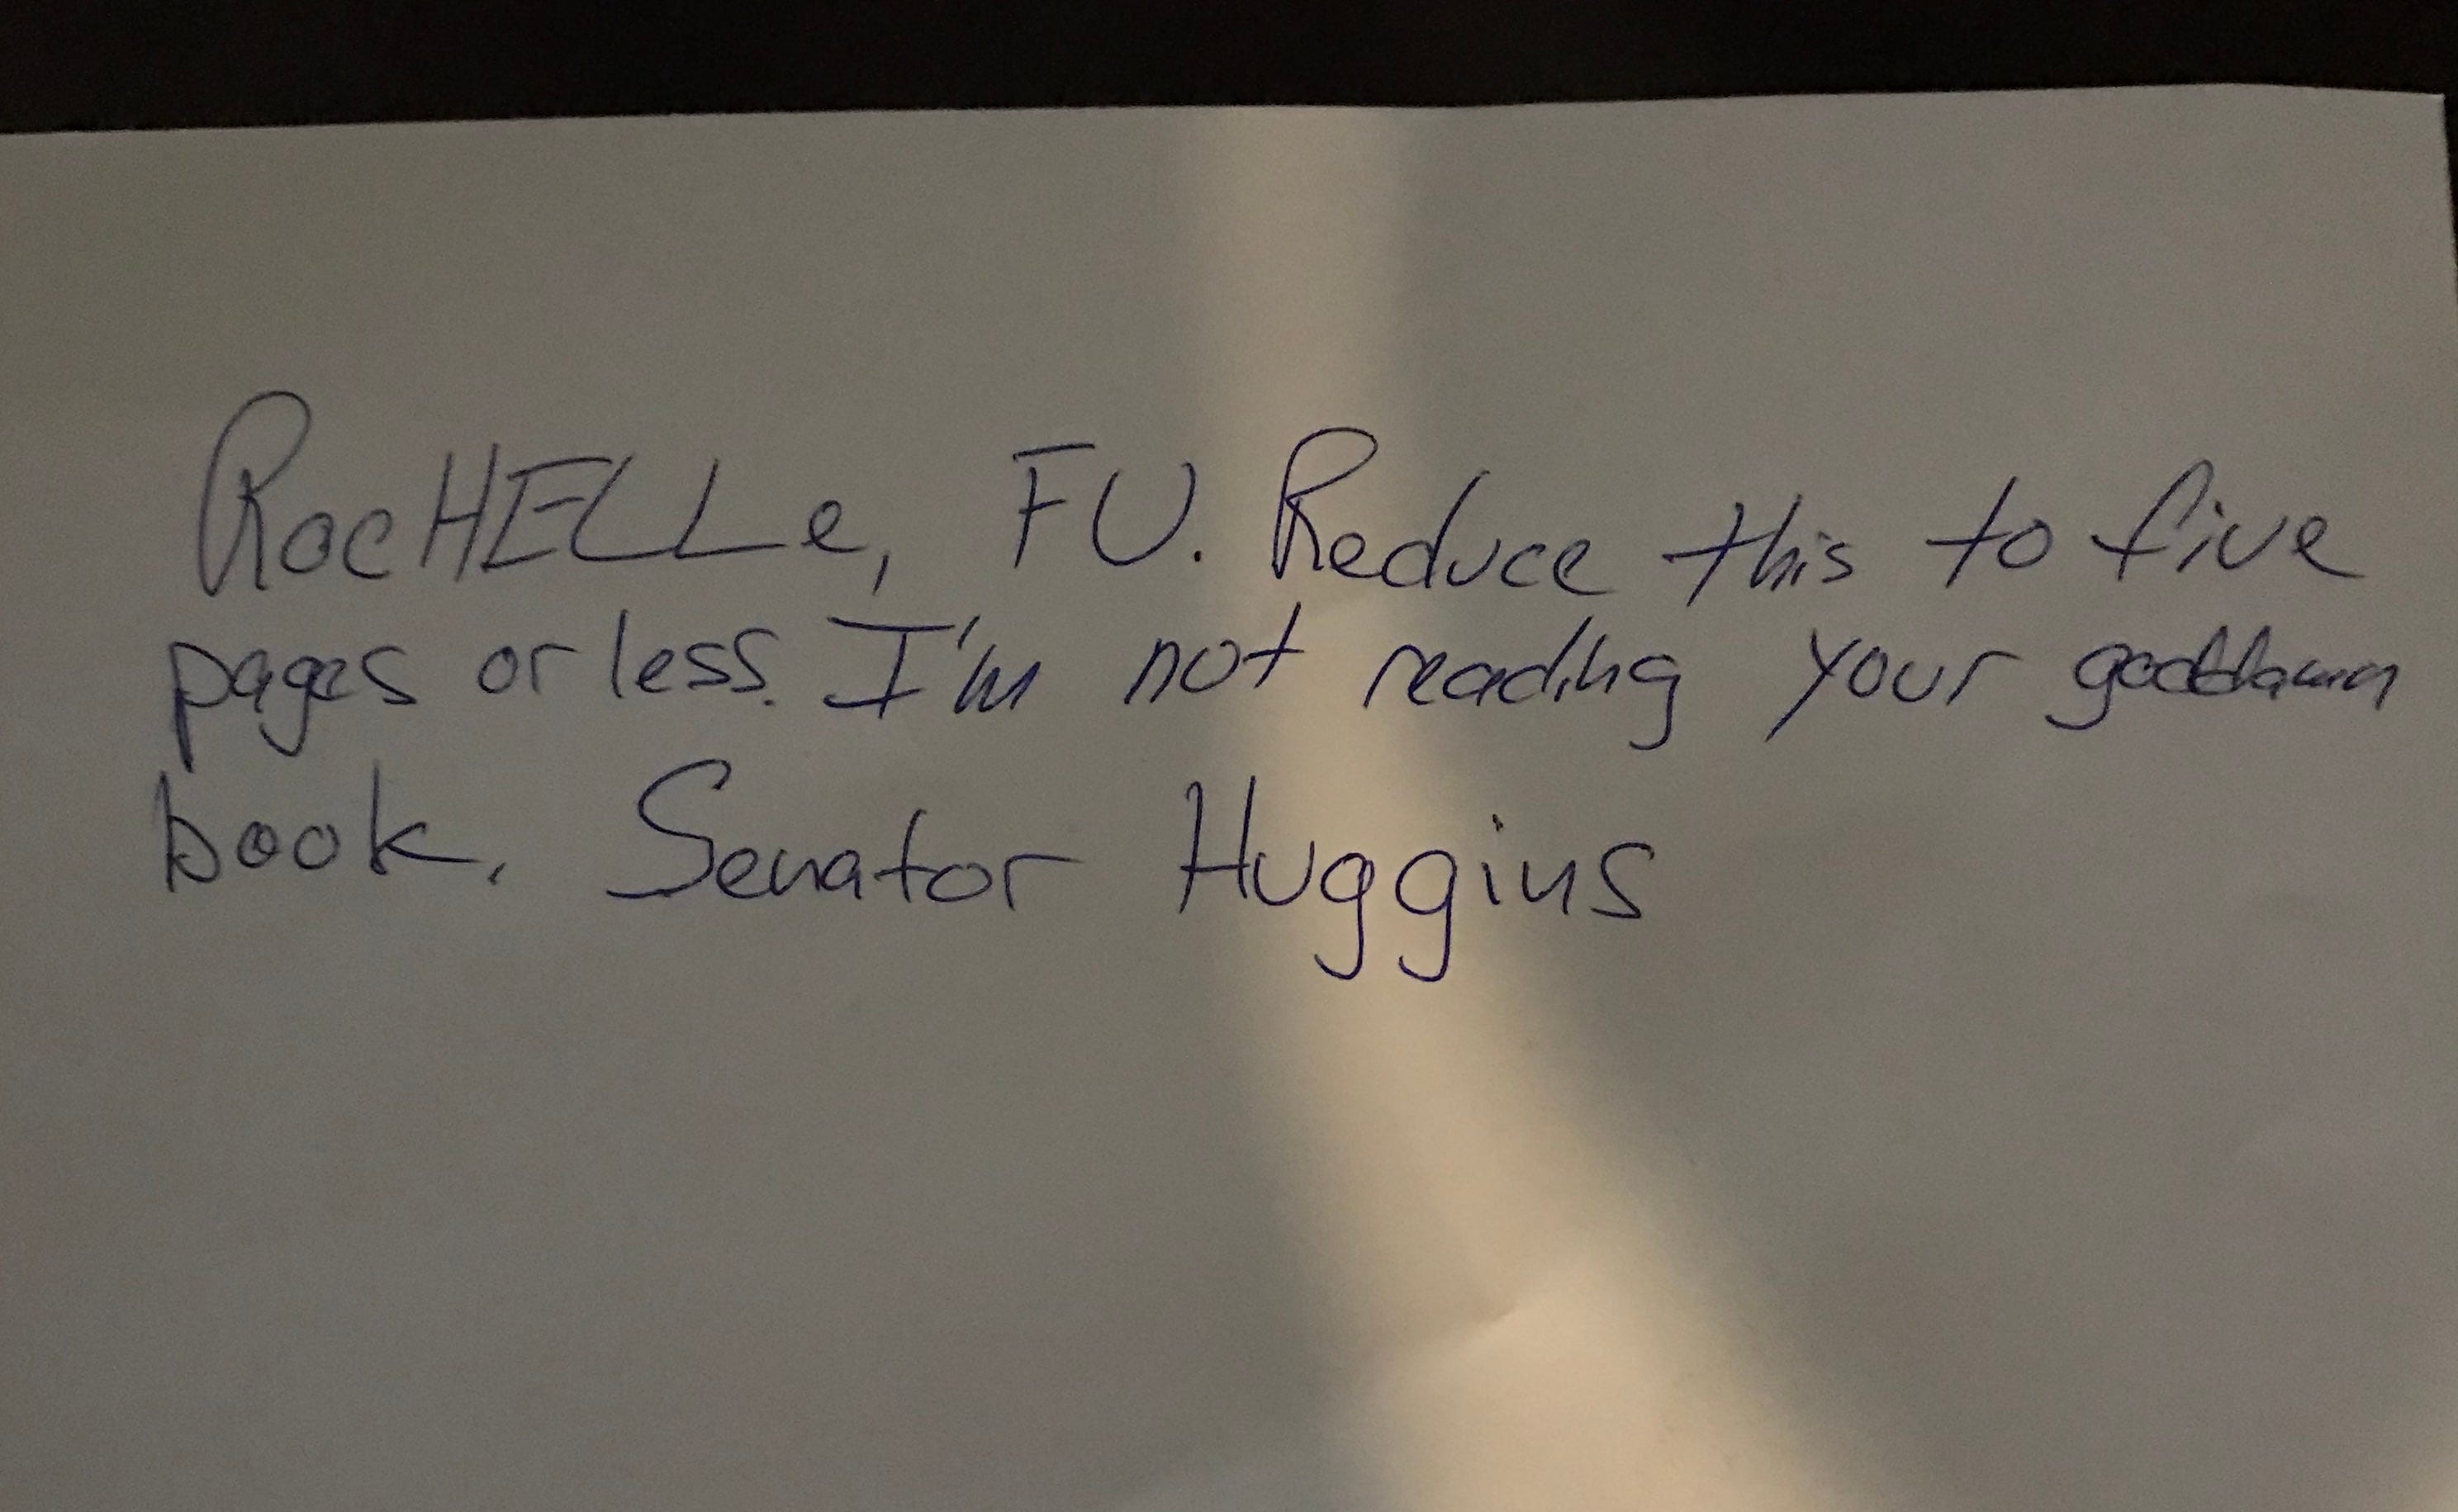 RocHELLe, FU. Reduce this to five
pages or less. I'm not reading your goddamn
book. Senator Huggins